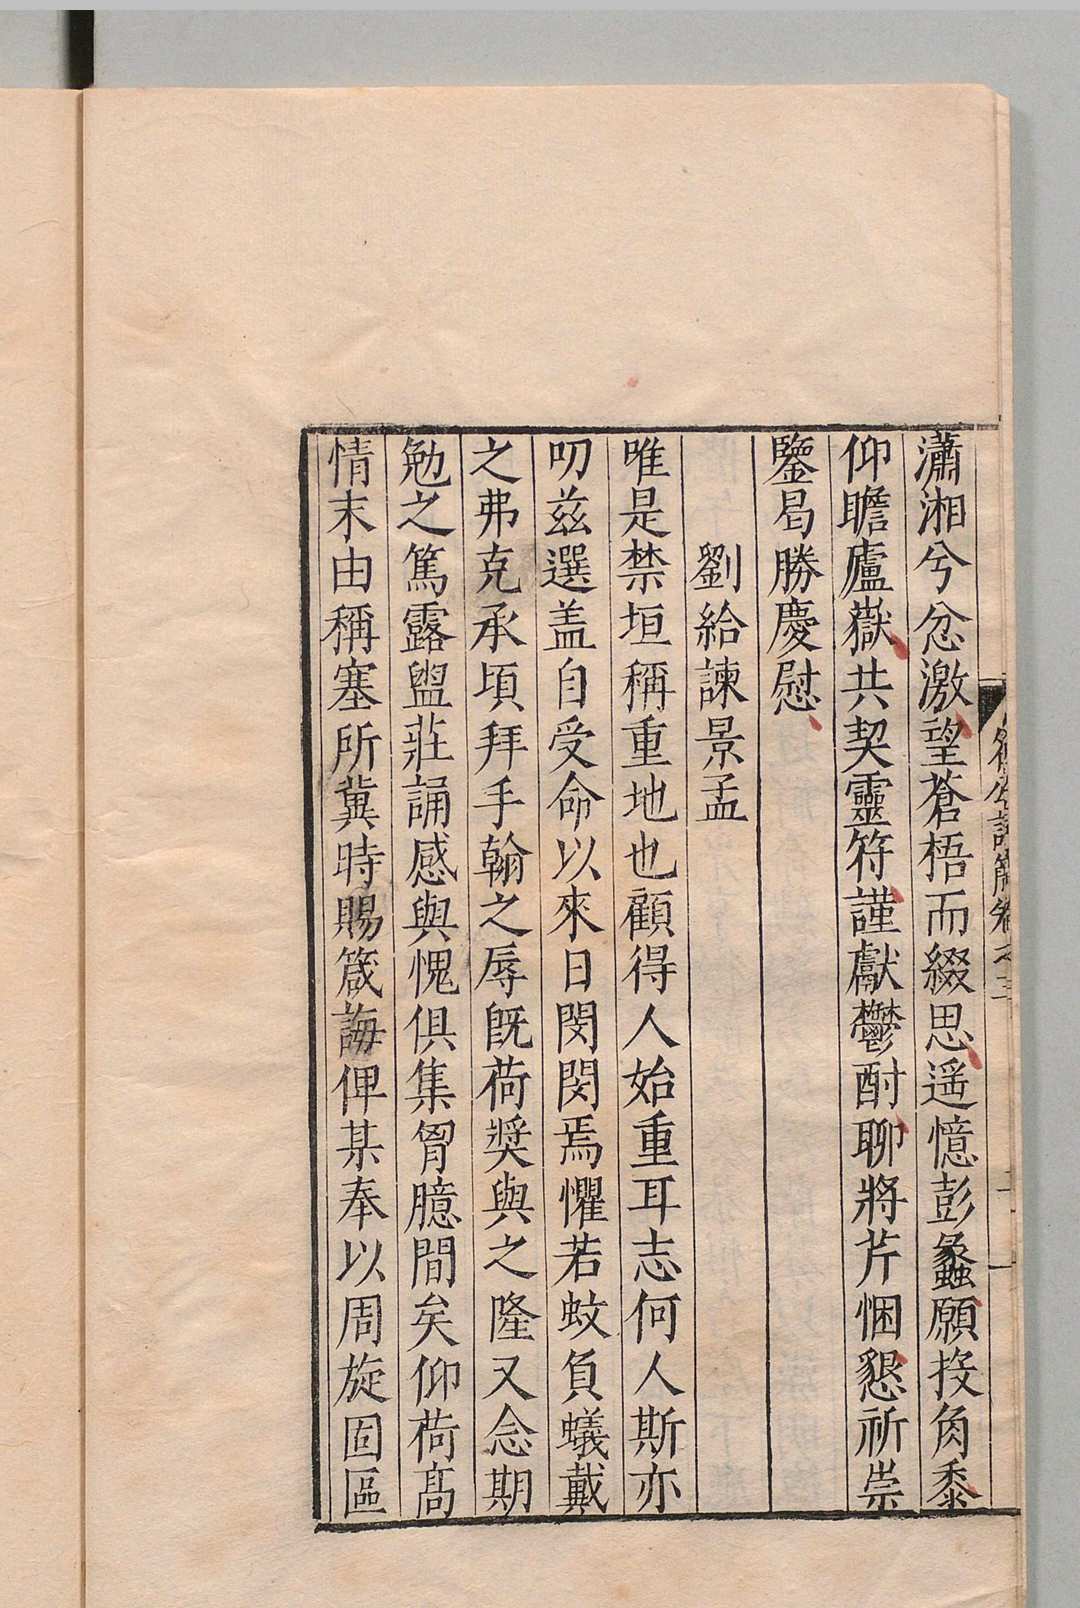 瀟湘兮忿激望蒼梧而綴思遥憶彭蠡願投角黍
仰瞻廬嶽共契靈符謹獻鬱酎聊將芹悃懇祈崇
鑒曷勝慶慰
劉給諫景孟
唯是禁垣稱重地也顧得人始重耳志何人斯亦
叨兹選盖自受命以來日閔閔焉懼若蚊負蟻戴
之弗克承頃拜手翰之辱既荷奬與之隆又念期
勉之篤露盥莊誦感與愧俱集胷臆間矣仰荷髙
情末由稱塞所兾時賜箴誨俾某奉以周旋固區